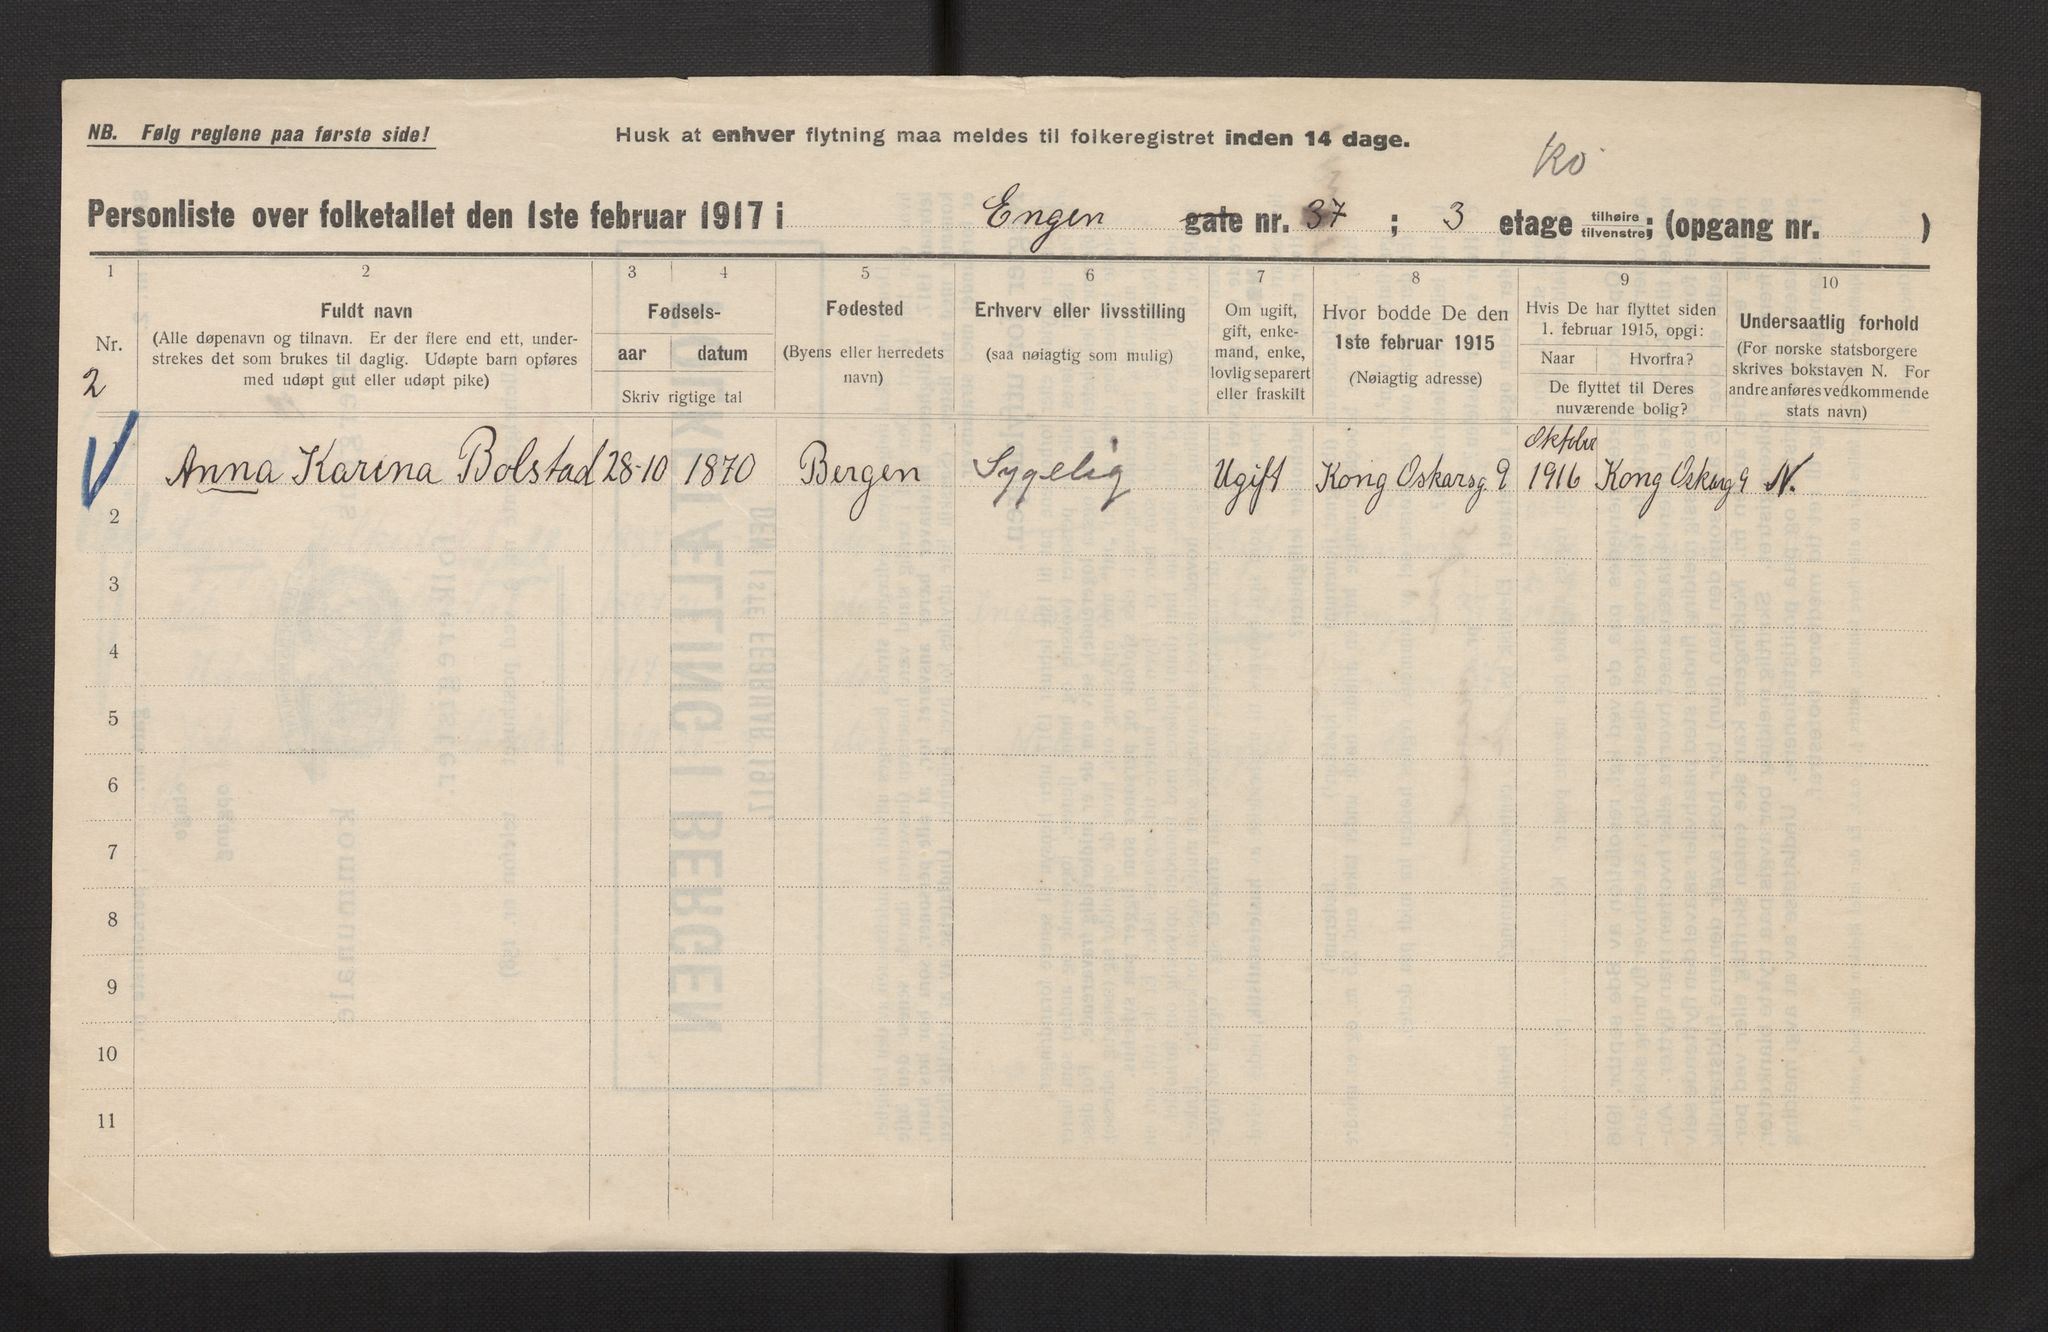 NB. Følg reglene paa første side!
Husk at enhver flytning maa meldes til folkeregistret inden 14 dage.
Personliste over folketallet den 1ste februar 1917 i Engen gate nr. 37 ; 3 etage tilhøire tilvenstre; (opgang nr. )
1 2 3 4 5 6 7 8 9 10
Nr.
2
Fuldt navn
(Alle døpenavn og tilnavn. Er der flere end ett, under-
strekes det som brukes til daglig. Udøpte barn opføres
med udøpt gut eller udøpt pike)
Fødsels-
aar datum
Skriv rigtige tal
Fødested
(Byens eller herredets
navn)
Erhverv eller livsstilling
(saa nøiagtig som mulig)
Om ugift,
gift, enke-
mand, enke,
lovlig separert
eller fraskilt
Hvor bodde De den
1ste februar 1915
(Nøiagtig adresse)
Hvis De har flyttet siden
1. februar 1915, opgi:
Naar Hvorfra?
De flyttet til Deres
nuværende bolig?
Undersaatlig forhold
(For norske statsborgere
skrives bokstaven N. For
andre anføres vedkommende
stats navn)
Anna Karina Bolstad 28-10 1870 Bergen Sygelig Ugift Kong Oskarsg 9 Oktober 1916 Kong Oskarsg 9 N.
2
3
4
5
6
7
8
9
10
11